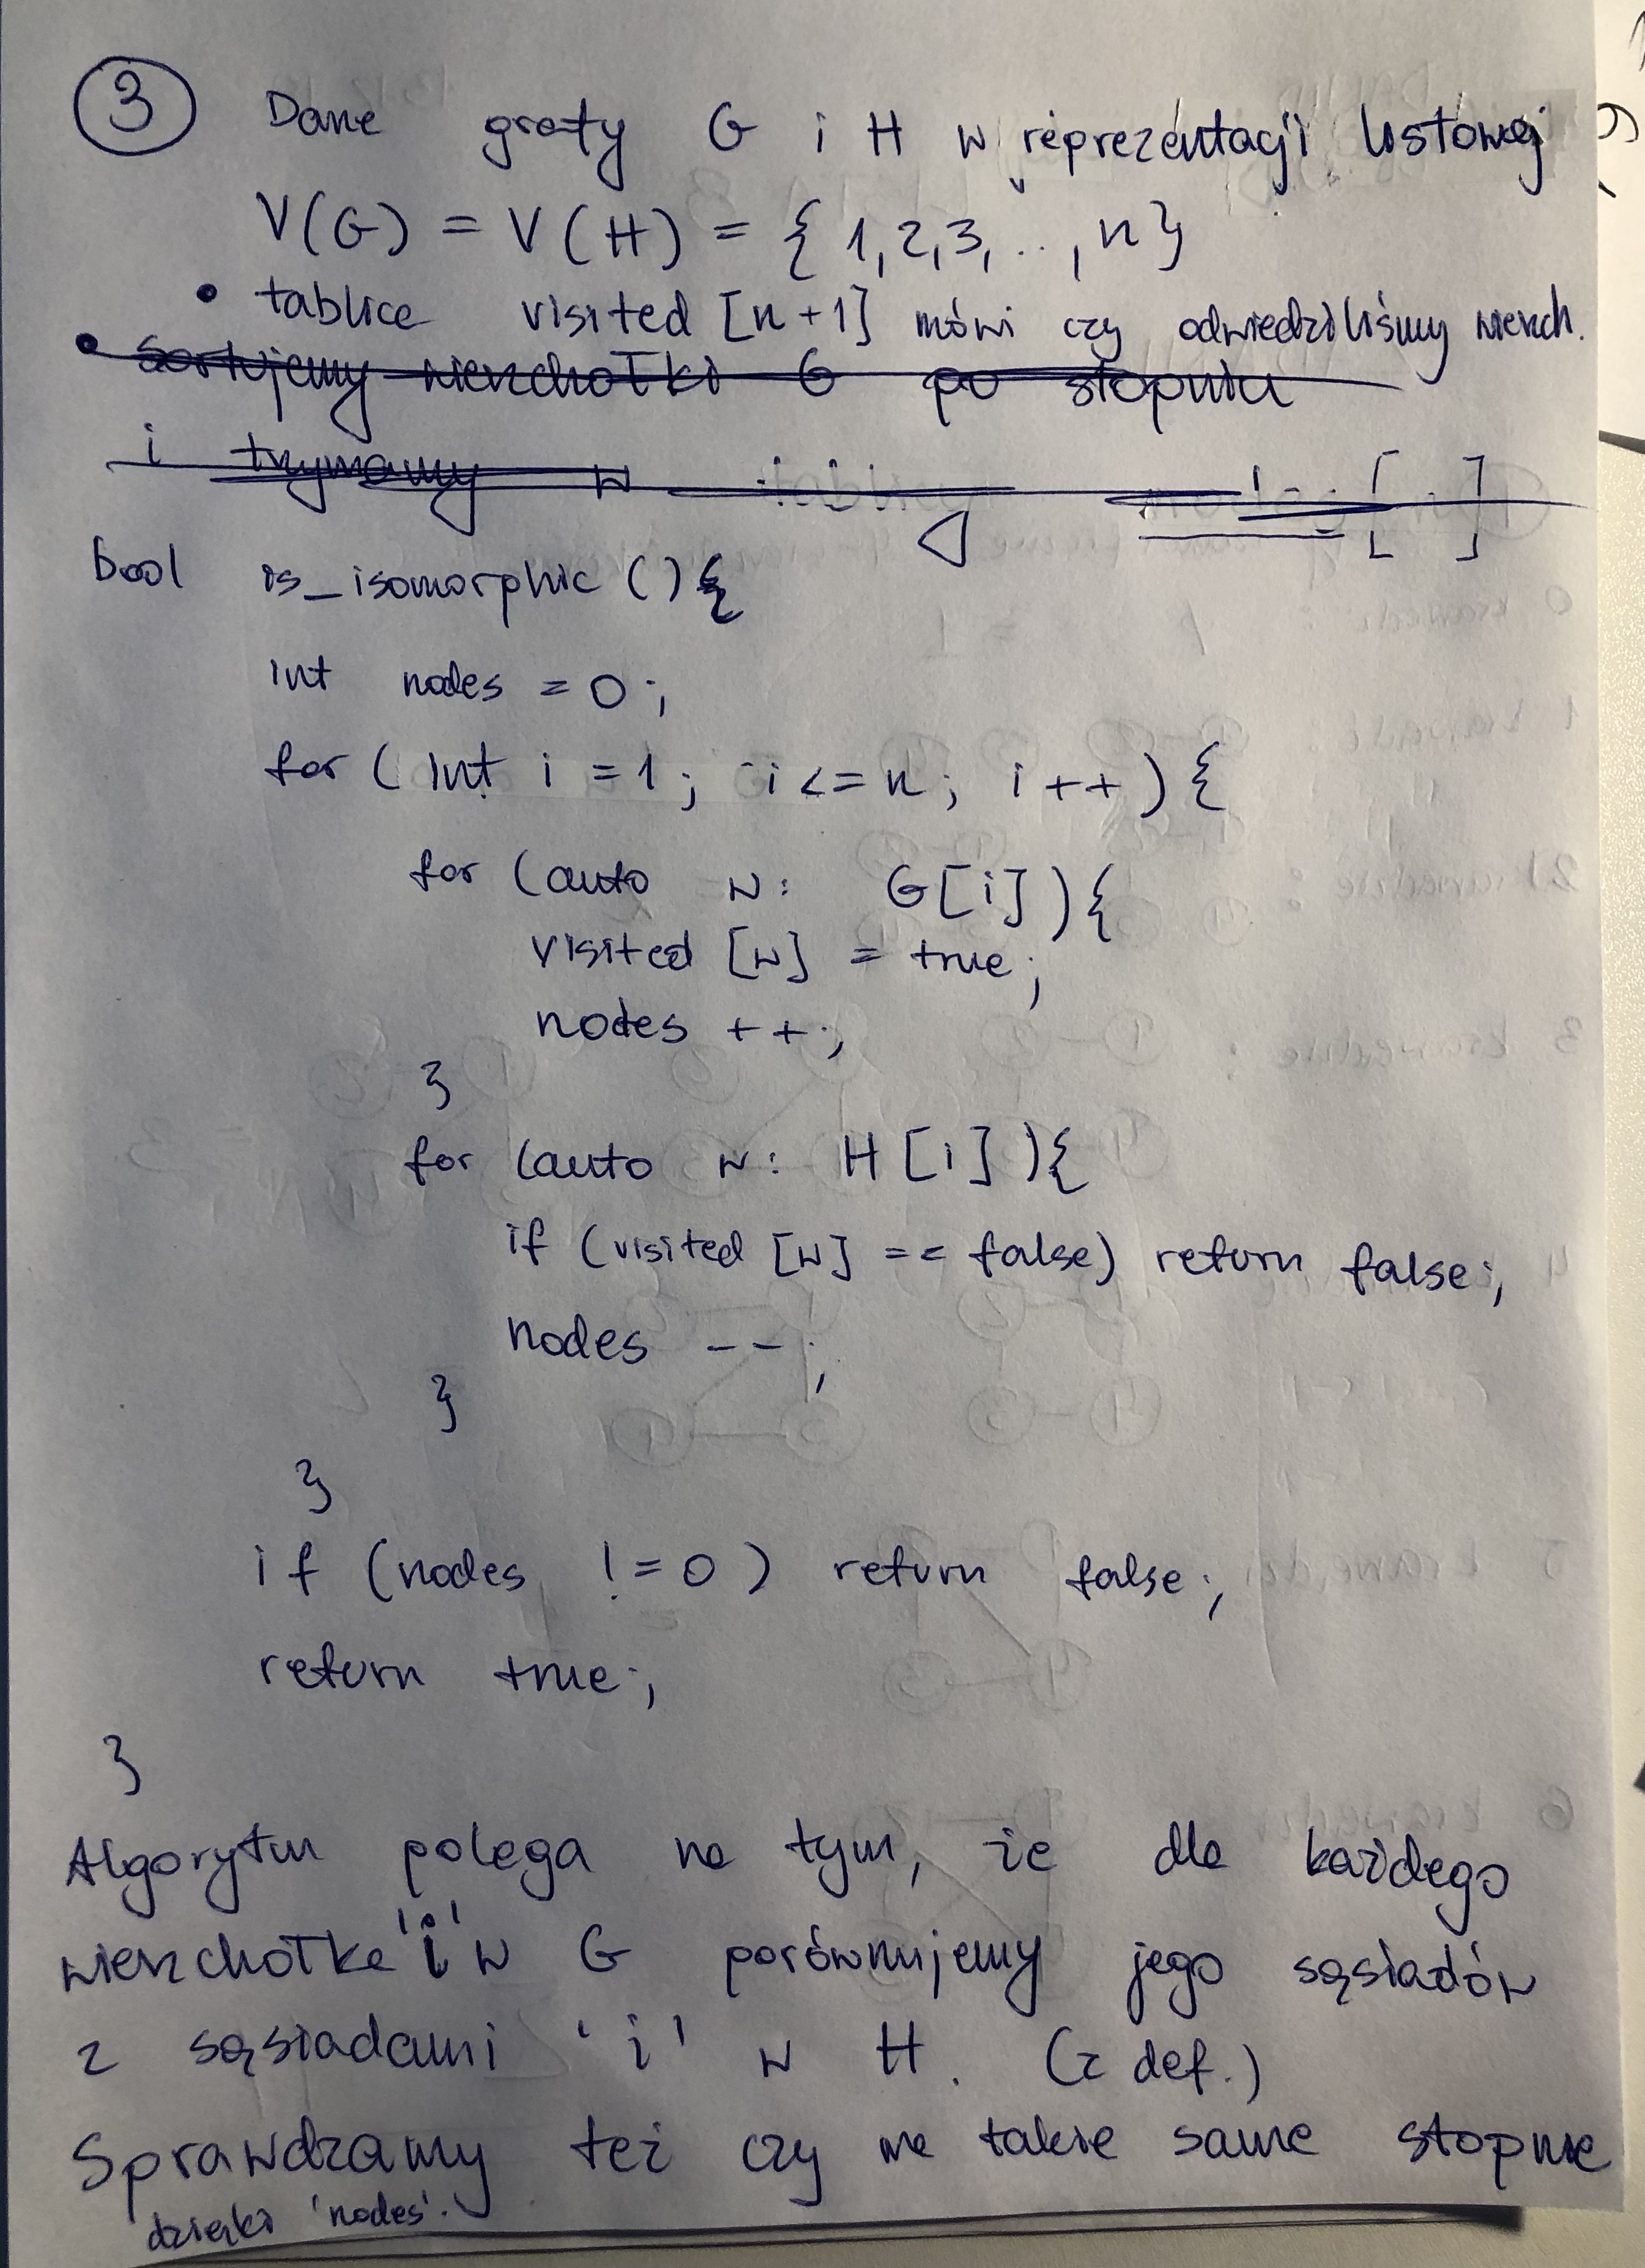 3 Dane grafy G i H w reprezentacji listowej
V(G) = V(H) = { 1,2,3, .., n}
• tablica visited [n+1] mówi czy odwiedziliśmy wierzch.
• sortujemy wierzchołki G po stopniu
i trzymamy w
bool is_isomorphic () {
int nodes = 0;
for ( int i = 1; i <= n; i ++ ) {
for (auto w: G[i]) {
visited [w] = true;
nodes ++;
}
for (auto w: H [i] ) {
if (visited [w] == false) return false;
nodes --;
}
}
if (nodes != 0) return false;
return true;
}
Algorytm polega na tym, że dla każdego
wierzchołka 'i' w G porównujemy jego sąsiadów
z sąsiadami 'i' w H. (z def.)
Sprawdzamy też czy ma takie same stopnie
dzięki 'nodes'.